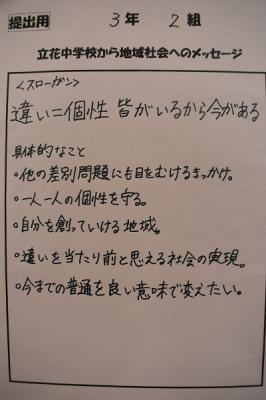 提出用 3年 2組
立花中学校から地域社会へのメッセージ
<スローガン>
違い=個性 皆がいるから今がある
具体的なこと
・他の差別問題にも目をむけるきっかけ。
・一人一人の個性を守る。
・自分を創っていける地域。
・違いを当たり前と思える社会の実現。
・今までの普通を良い意味で変えたい。